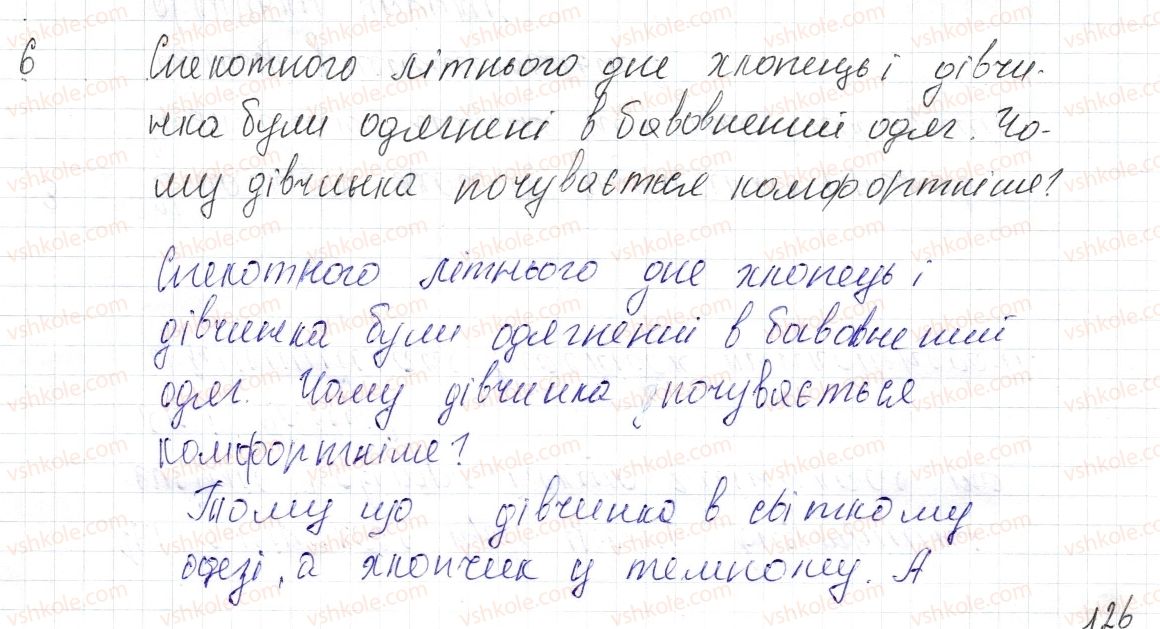 6 Спекотного літнього дне хлопець і дівчи-
нка були одягнені в бавовнений одяг. Чо-
му дівчинка почувається комфортніше?
Спекотного літнього дне хлопець і
дівчинка були одягнений в бавовнений
одяг. Чому дівчинка почувається
комфортніше?
Тому що дівчинка в світкому
одезі, а хлопчик у темному. А
126